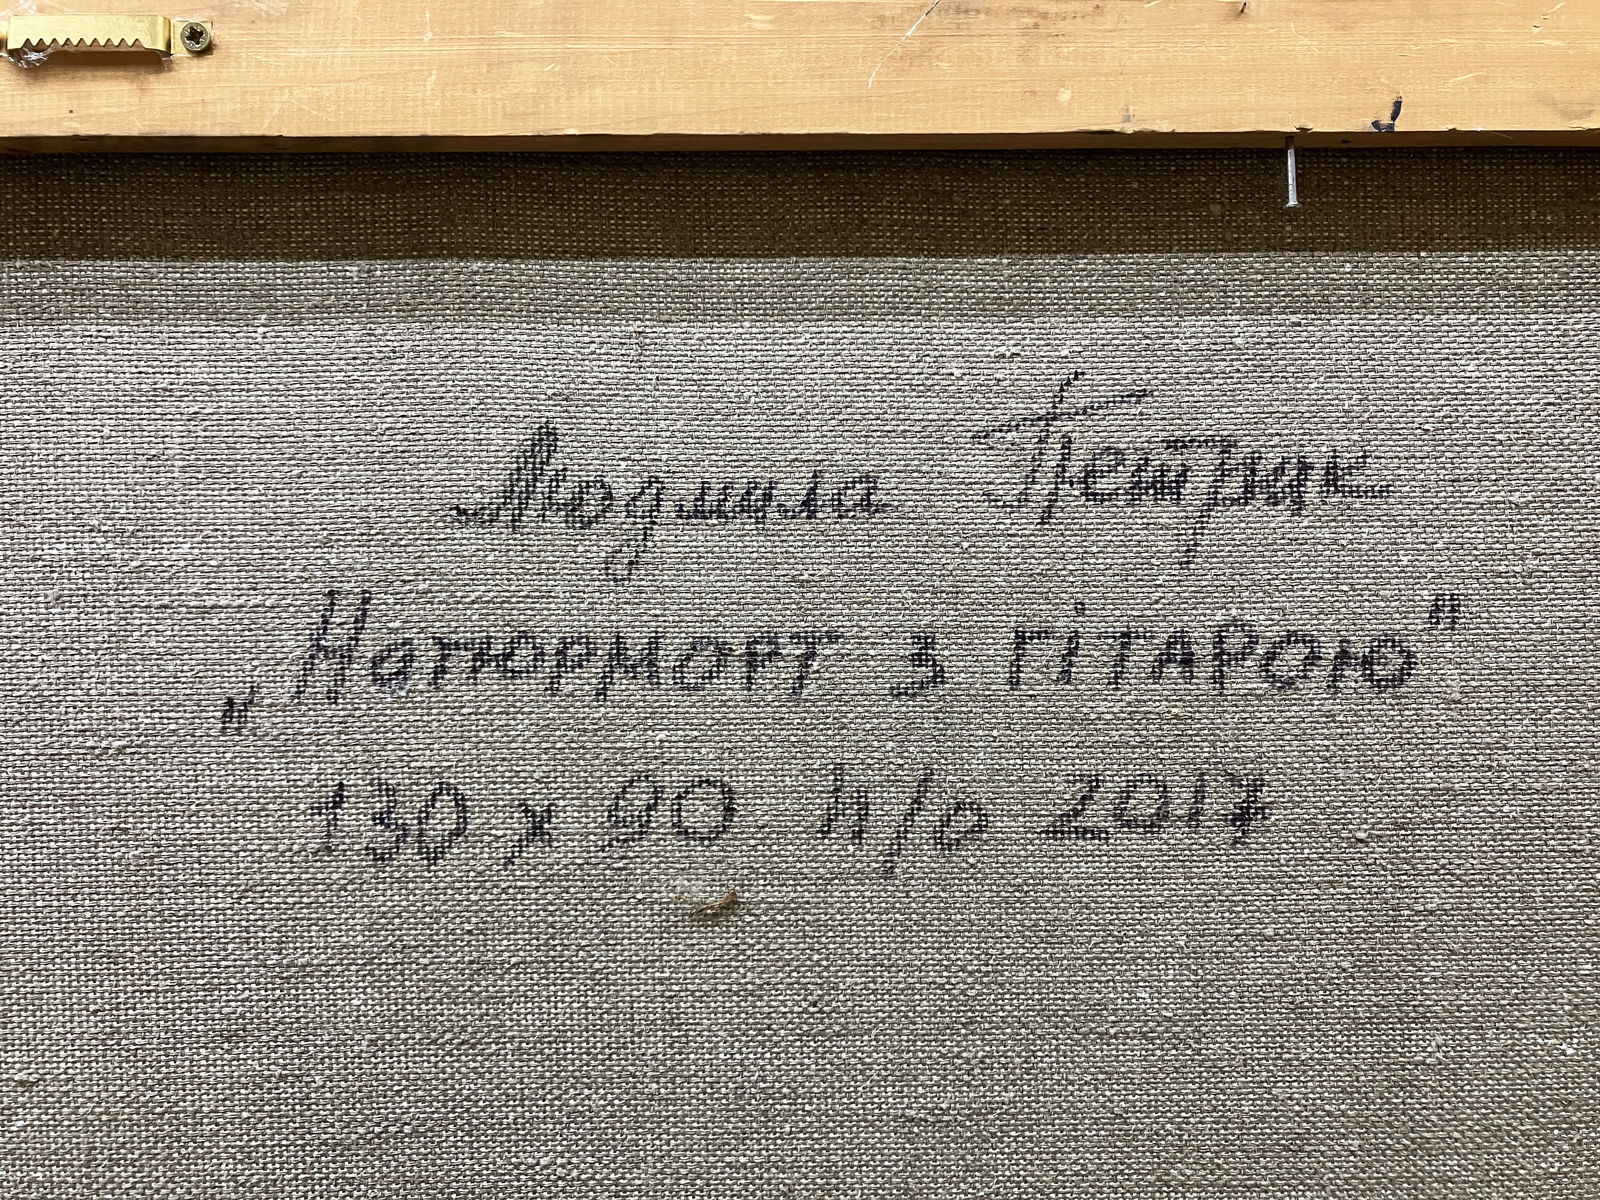 Людмила Петрик
„Натюрморт з гітарою"
130 х 90 н/о 2017